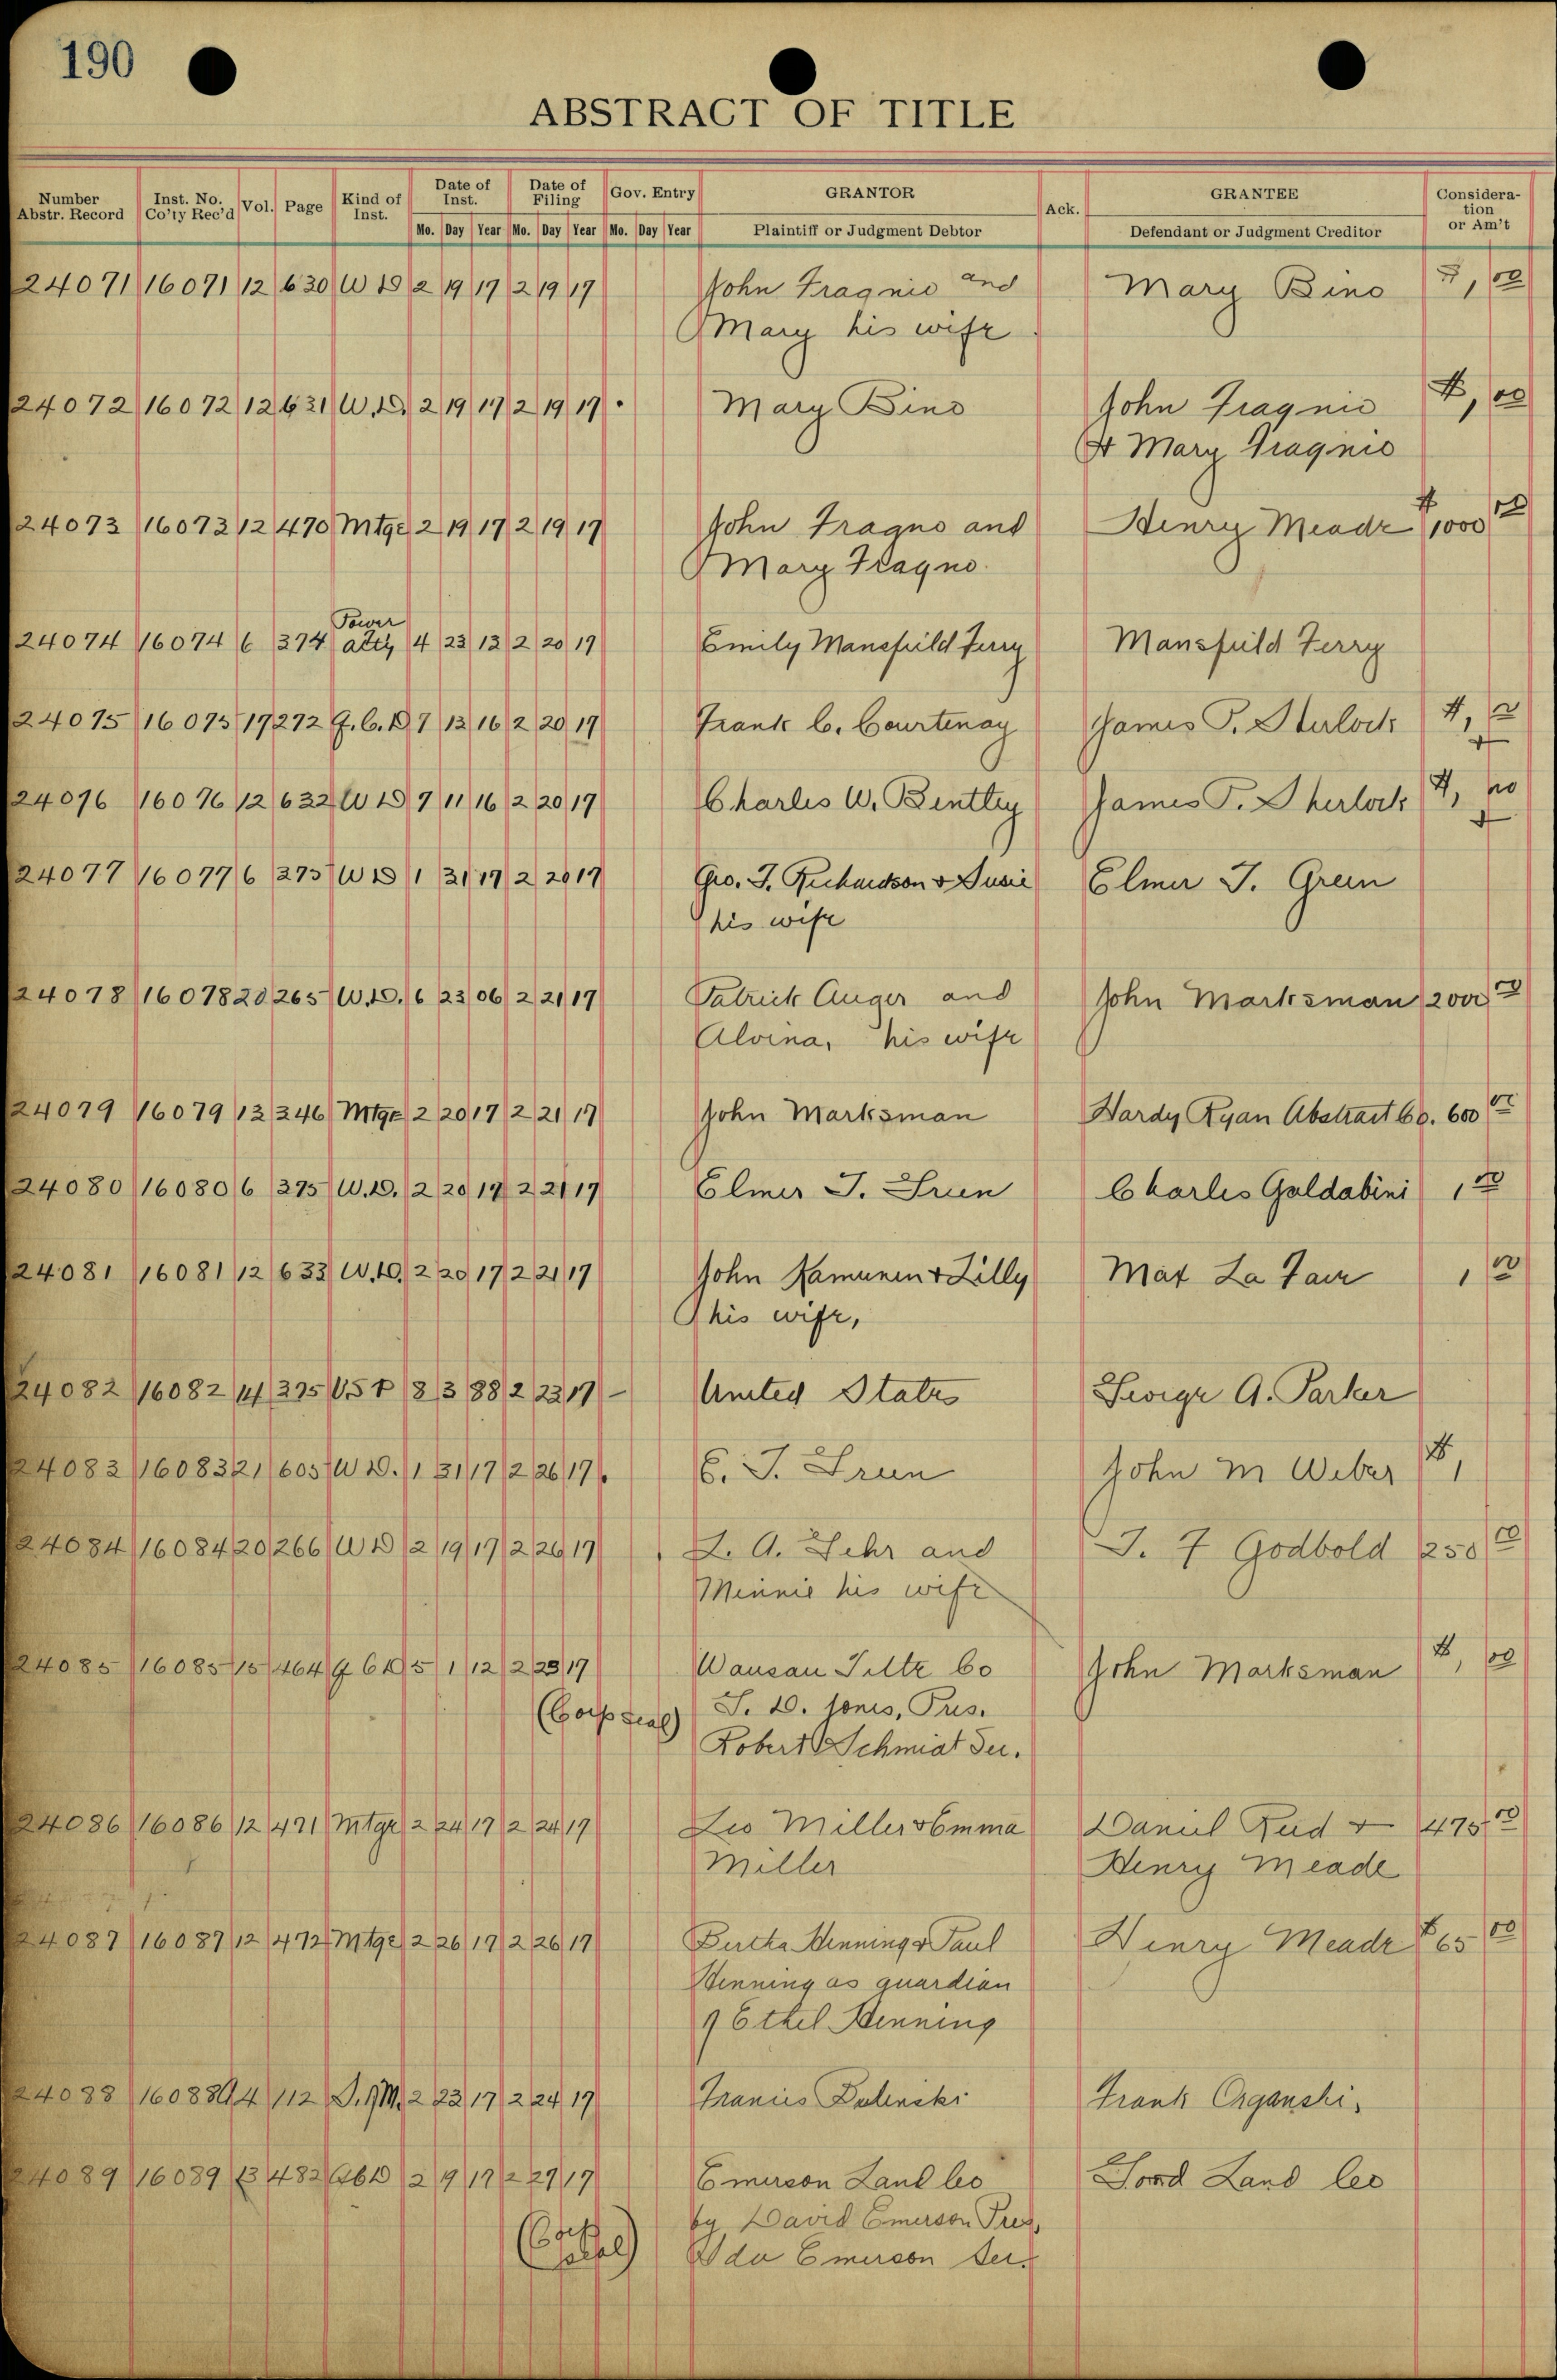 190
ABSTRACT OF TITLE
Number Abstr. Record Inst. No. Co'ty Rec'd Vol. Page Kind of Inst. Date of Inst. Date of Filing Gov. Entry GRANTOR Ack. GRANTEE Consideration or Am't
Mo. Day Year Mo. Day Year Mo. Day Year Plaintiff or Judgment Debtor Defendant or Judgment Creditor
24071 16071 12 630 W D 2 19 17 2 19 17 John Fragnio and Mary Bino $1,00
Mary his wife
24072 16072 12 631 W.D. 2 19 17 2 19 17 Mary Bino John Fragnio $1,00
& Mary Fragnio
24073 16073 12 470 Mtge 2 19 17 2 19 17 John Fragno and Henry Meade $1000 00
Mary Fragno
Power
24074 16074 6 374 atty 4 23 13 2 20 17 Emily Mansfield Ferry Mansfield Ferry
24075 16075 17 272 Q.C.D 7 13 16 2 20 17 Frank C. Courtenay James T. Sherlock $1,00
24076 16076 12 632 W D 7 11 16 2 20 17 Charles W. Bentley James T. Sherlock $1, 00
24077 16077 6 375 W D 1 31 17 2 20 17 Geo. T. Richardson & Susie Elmer J. Green
his wife
24078 16078 20 265 W.D. 6 23 06 2 21 17 Patrick Auger and John Marksman 200 00
Alvina, his wife
24079 16079 13 346 Mtge 2 20 17 2 21 17 John Marksman Hardy Ryan Abstract Co. 600 00
24080 16080 6 375 W.D. 2 20 17 2 21 17 Elmer J. Green Charles Galdabini 1 00
24081 16081 12 633 W.D. 2 20 17 2 21 17 John Kamunen & Lilly Max La Fair 1 00
his wife,
24082 16082 14 375 U S P 8 3 88 2 23 17 United States George A. Parker
24083 16083 21 605 W D. 1 31 17 2 26 17 E. J. Green John M Weber $1,
24084 16084 20 266 W D 2 19 17 2 26 17 L. A. Gehr and J. F Godbold 250 00
Minnie his wife
24085 16085 15 464 Q C D 5 1 12 2 23 17 Wausau Title Co John Marksman $1, 00
(Corp Seal) S. D. Jones, Pres.
Robert Schmidt Sec.
24086 16086 12 471 Mtge 2 24 17 2 24 17 Leo Miller & Emma Daniel Rud & 475 00
Miller Henry Meade
24087 16087 12 472 Mtge 2 26 17 2 26 17 Bertha Henning & Paul Henry Meade $65 00
Henning as guardian
of Ethel Henning
24088 16088 A4 112 D.of M. 2 23 17 2 24 17 Francis Frank Organski,
24089 16089 13 482 2 9 17 2 27 17 Emerson Land Co Land Co
by David Emerson Pres,
(Corp Seal) Ida Emerson Sec.